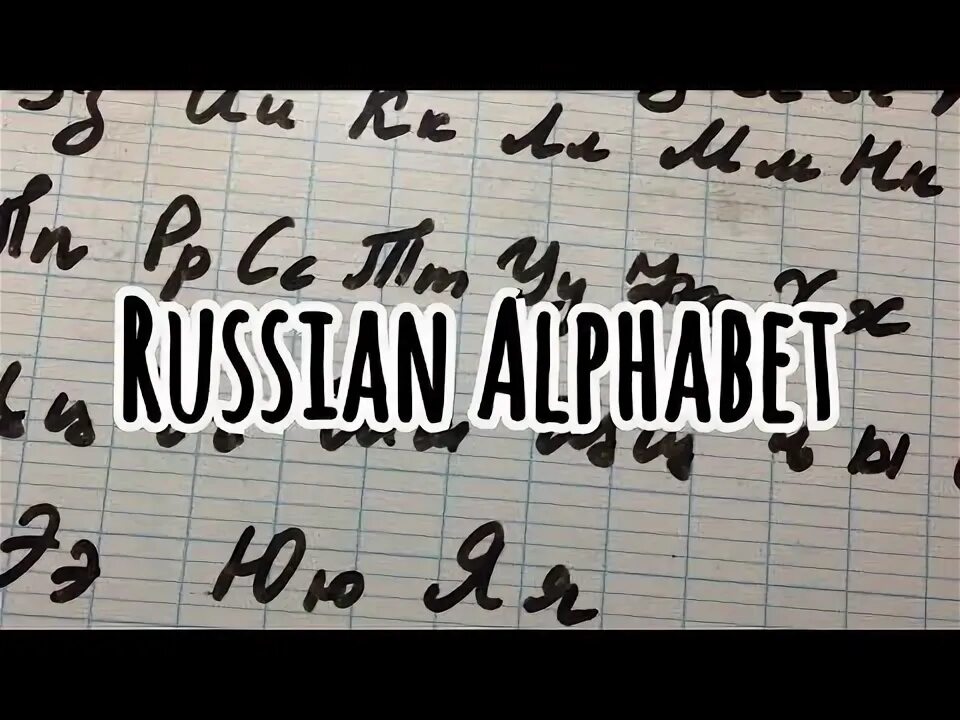 Зз Ии Кк Лл Мм Нн
Пп Рр Сс Тт Уу Фф Хх
Russian Alphabet
Цц Шш Щщ ъ ы
Ээ Юю Яя